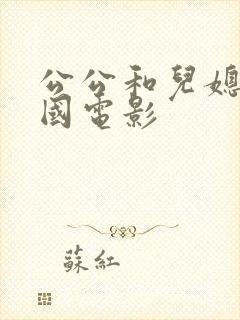 公公和兒媳
國電影
蘇紅